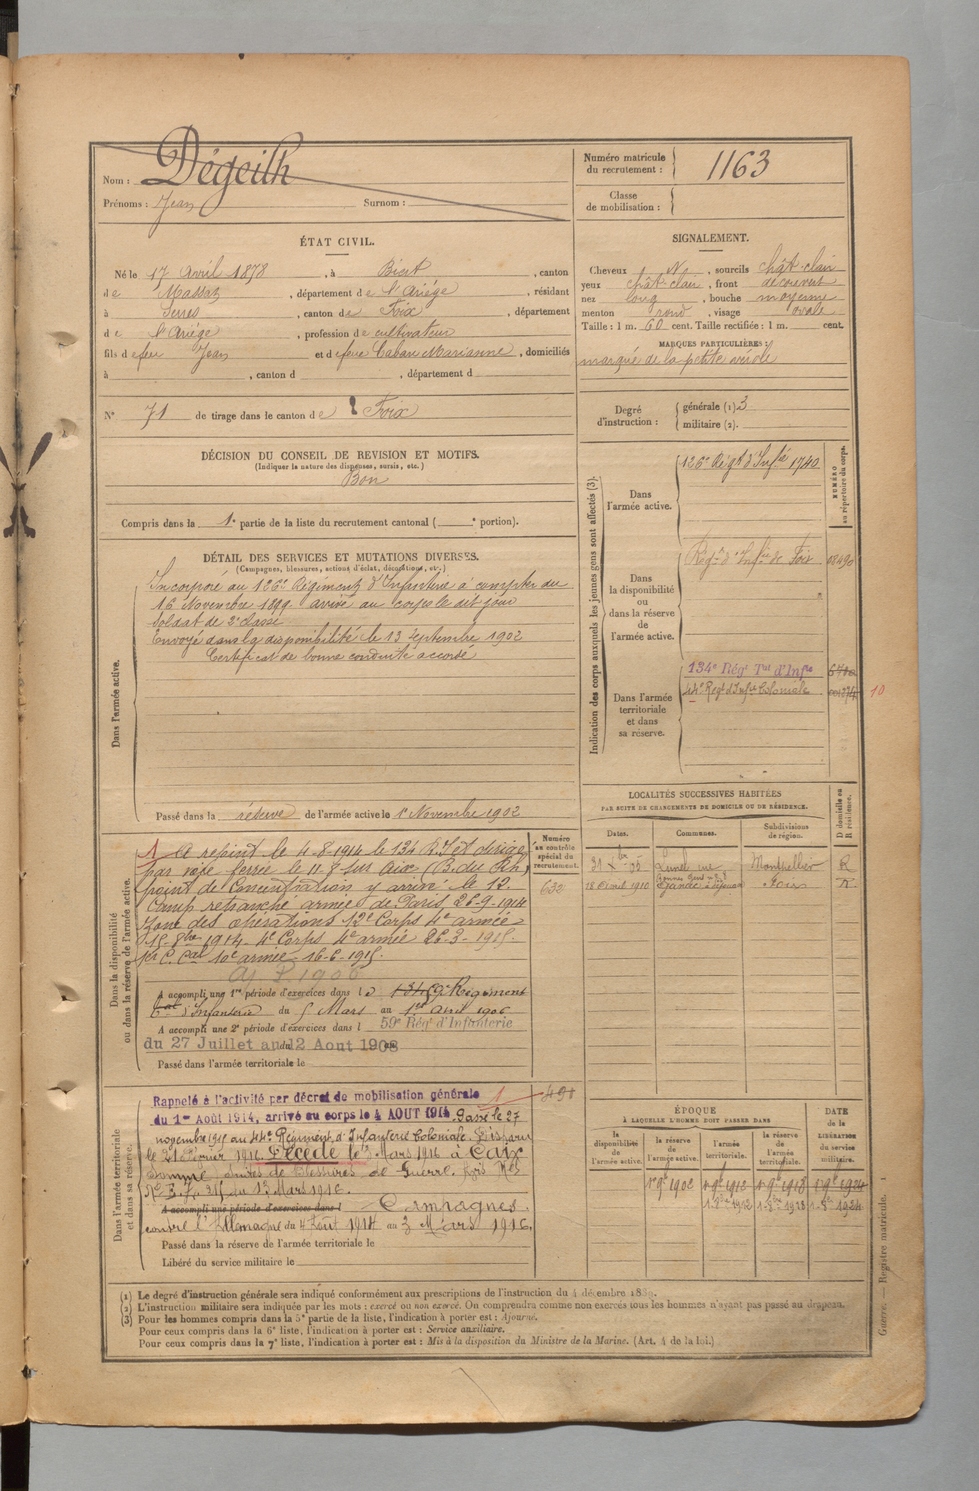 Nom : Dégeilh
Prénoms : Jean Surnom :
Numéro matricule du recrutement : 1163
Classe de mobilisation :
ÉTAT CIVIL.
Né le 17 Avril 1878, à Biert, canton
de Massat, département de l'Ariége, résidant
à Serres, canton de Foix, département
de l'Ariége, profession de cultivateur
fils de feu Jean et de feue Caban Marianne, domiciliés
à , canton d , département d
N° 71 de tirage dans le canton de Foix
SIGNALEMENT.
Cheveux N, sourcils chât-clair
yeux chât-clair, front découvert
nez long, bouche moyenne
menton rond, visage ovale
Taille : 1 m. 60 cent. Taille rectifiée : 1 m. cent.
MARQUES PARTICULIÈRES :
marqué de la petite vérole
Degré d'instruction : générale (1) 3
militaire (2).
DÉCISION DU CONSEIL DE REVISION ET MOTIFS.
(Indiquer la nature des dispenses, sursis, etc.)
Bon
Compris dans la 1e partie de la liste du recrutement cantonal ( e portion).
DÉTAIL DES SERVICES ET MUTATIONS DIVERSES.
(Campagnes, blessures, actions d'éclat, décorations, etc.)
Dans l'armée active.
Incorporé au 126e Régiment d'Infanterie à compter du
16 Novembre 1899. arrivé au corps le dit jour
Soldat de 2e classe
Envoyé dans la disponibilité le 13 Septembre 1902
Certificat de bonne conduite accordé
Passé dans la réserve de l'armée active le 1er Novembre 1902
Indication des corps auxquels les jeunes gens sont affectés (3).
NUMÉRO au répertoire du corps.
Dans l'armée active.
126e Régt d'Infie 1740
Dans la disponibilité ou dans la réserve de l'armée active.
Régt d'Infie de Foix
Dans l'armée territoriale et dans sa réserve.
134e Régt Tal d'Infie
44e Régt d'Infie Coloniale
10
LOCALITÉS SUCCESSIVES HABITÉES
PAR SUITE DE CHANGEMENTS DE DOMICILE OU DE RÉSIDENCE.
Dates. Communes. Subdivisions de région. D domicile ou R résidence.
Montpellier R
18 Avril 1910 Foix R
Dans la disponibilité ou dans la réserve de l'armée active.
Numéro au contrôle spécial du recrutement.
632
A rejoint le 4-8-1914 le 134 R.I et dirigé
par voie ferrée le 11-8 sur Aix (B. du Rh)
point de Concentration y arrivé le 12.
Camp retranché armée de Paris 26-9-1914
Zone des opérations 12e Corps 4e armée
4e Corps 4e armée 26-3-1915.
10e armée 16-6-1915.
A accompli une 1re période d'exercices dans le 59e Régiment
d'Infanterie du 5 Mars au 1er Avril 1906
A accompli une 2e période d'exercices dans l 59e Régt d'Infanterie
du 27 Juillet au 12 Aout 1908
Passé dans l'armée territoriale le
Dans l'armée territoriale et dans sa réserve.
Rappelé à l'activité par décret de mobilisation générale
du 1er Août 1914, arrivé au corps le 4 AOUT 1914. Passé le 27
novembre 1915 au 44e Régiment d'Infanterie Coloniale. Disparu
le 21 Février 1916. Décédé le 3 Mars 1916 à Caix
Somme suites de blessures de Guerre.
du 13 Mars 1916.
A accompli une période d'exercices dans l
Campagnes.
contre l'Allemagne du 4 Août 1914 au 3 Mars 1916.
Passé dans la réserve de l'armée territoriale le
Libéré du service militaire le
ÉPOQUE
À LAQUELLE L'HOMME DOIT PASSER DANS
la disponibilité de l'armée active. la réserve de l'armée active. l'armée territoriale. la réserve de l'armée territoriale. DATE de la LIBÉRATION du service militaire.
(1) Le degré d'instruction générale sera indiqué conformément aux prescriptions de l'instruction du 4 décembre 1889.
(2) L'instruction militaire sera indiquée par les mots : exercé ou non exercé. On comprendra comme non exercés tous les hommes n'ayant pas passé au drapeau.
(3) Pour les hommes compris dans la 5e partie de la liste, l'indication à porter est : Ajourné.
Pour ceux compris dans la 6e liste, l'indication à porter est : Service auxiliaire.
Pour ceux compris dans la 7e liste, l'indication à porter est : Mis à la disposition du Ministre de la Marine. (Art. 4 de la loi.)
Guerre. — Registre matricule. 1